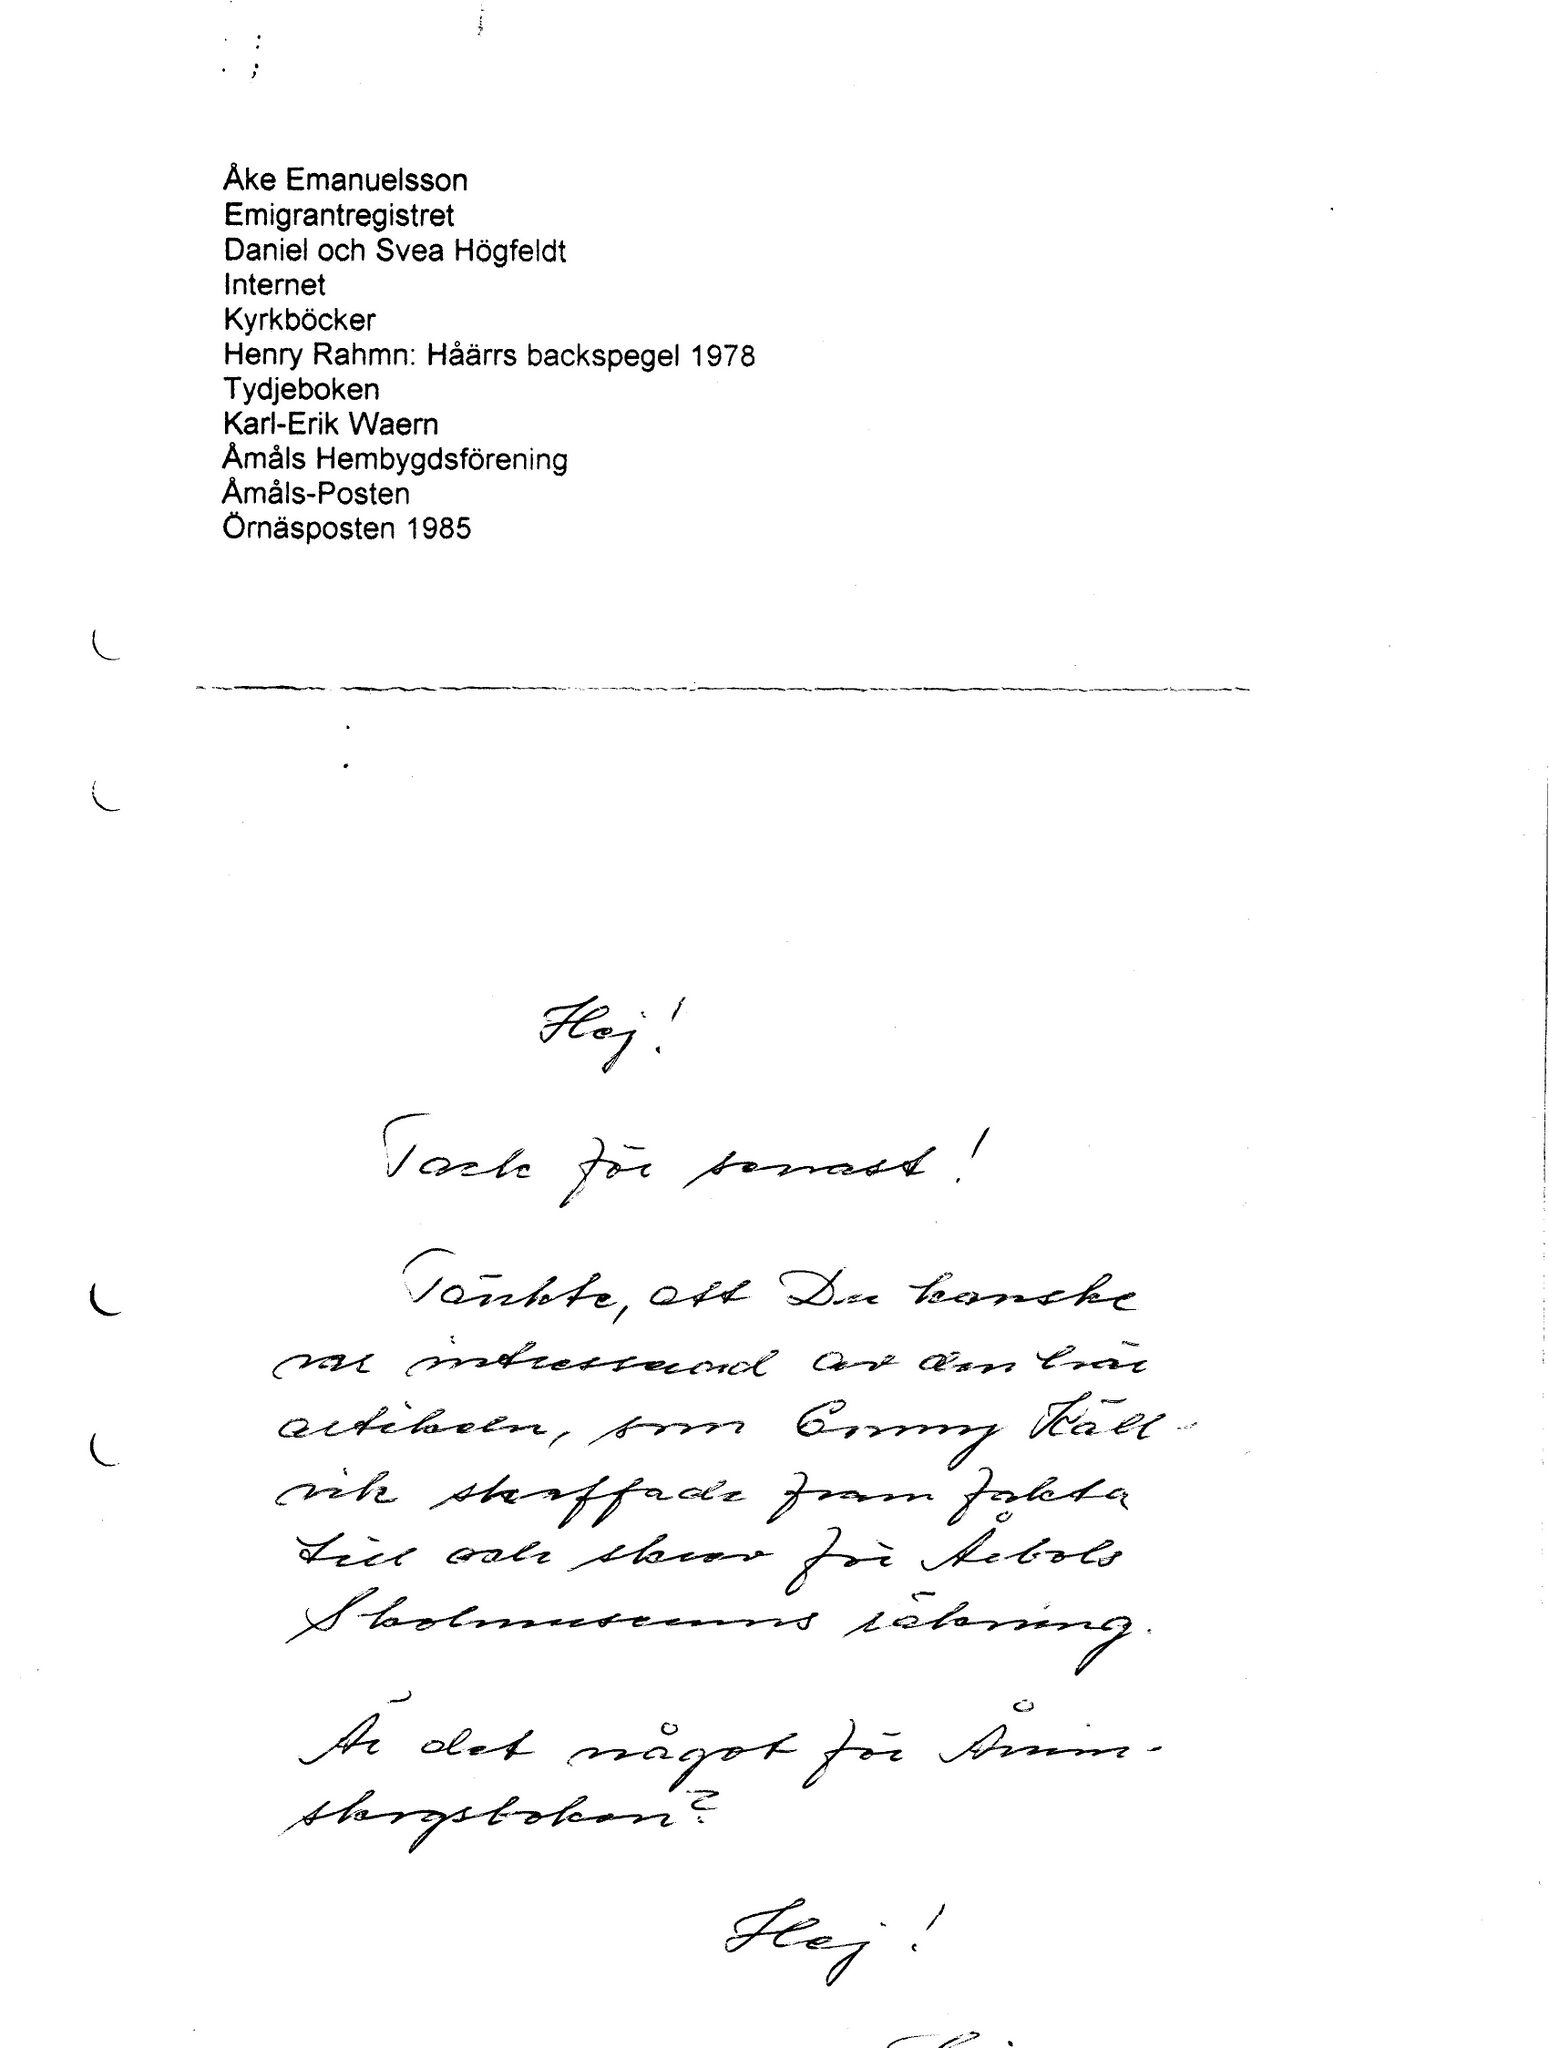 Åke Emanuelsson
Emigrantregistret
Daniel och Svea Högfeldt
Internet
Kyrkböcker
Henry Rahmn: Håärrs backspegel 1978
Tydjeboken
Karl-Erik Waern
Åmåls Hembygdsförening
Åmåls-Posten
Örnäsposten 1985
Hej!
Tack för senast!
Tänkte, att Du kanske
var intresserad av den här
artikeln, som Emmy Käll-
vik skaffade fram fakta
till och skrev för Årbols
Skolmuseums räkning.
Är det något för Ånim-
skogsboken?
Hej!